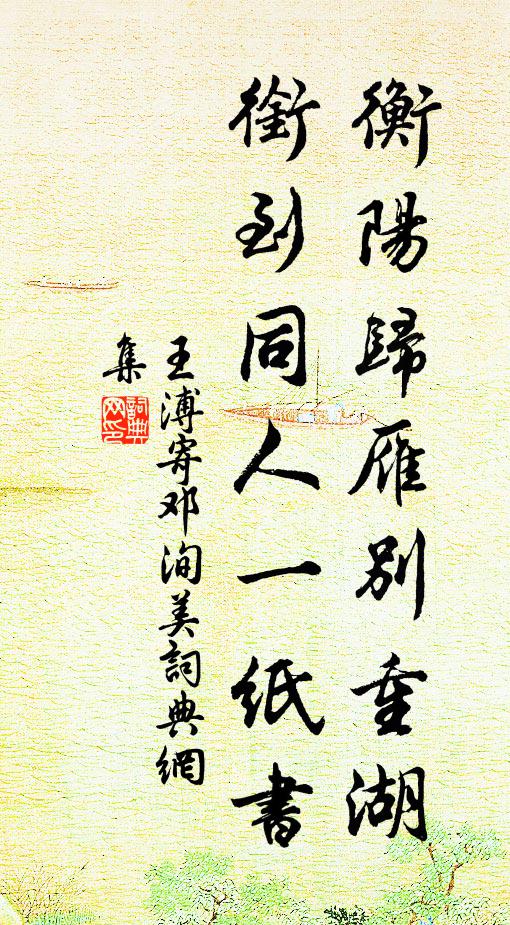 衡陽歸雁別重湖
銜到同人一紙書
王溥寄邓洵美詞典網
集
詞典网印